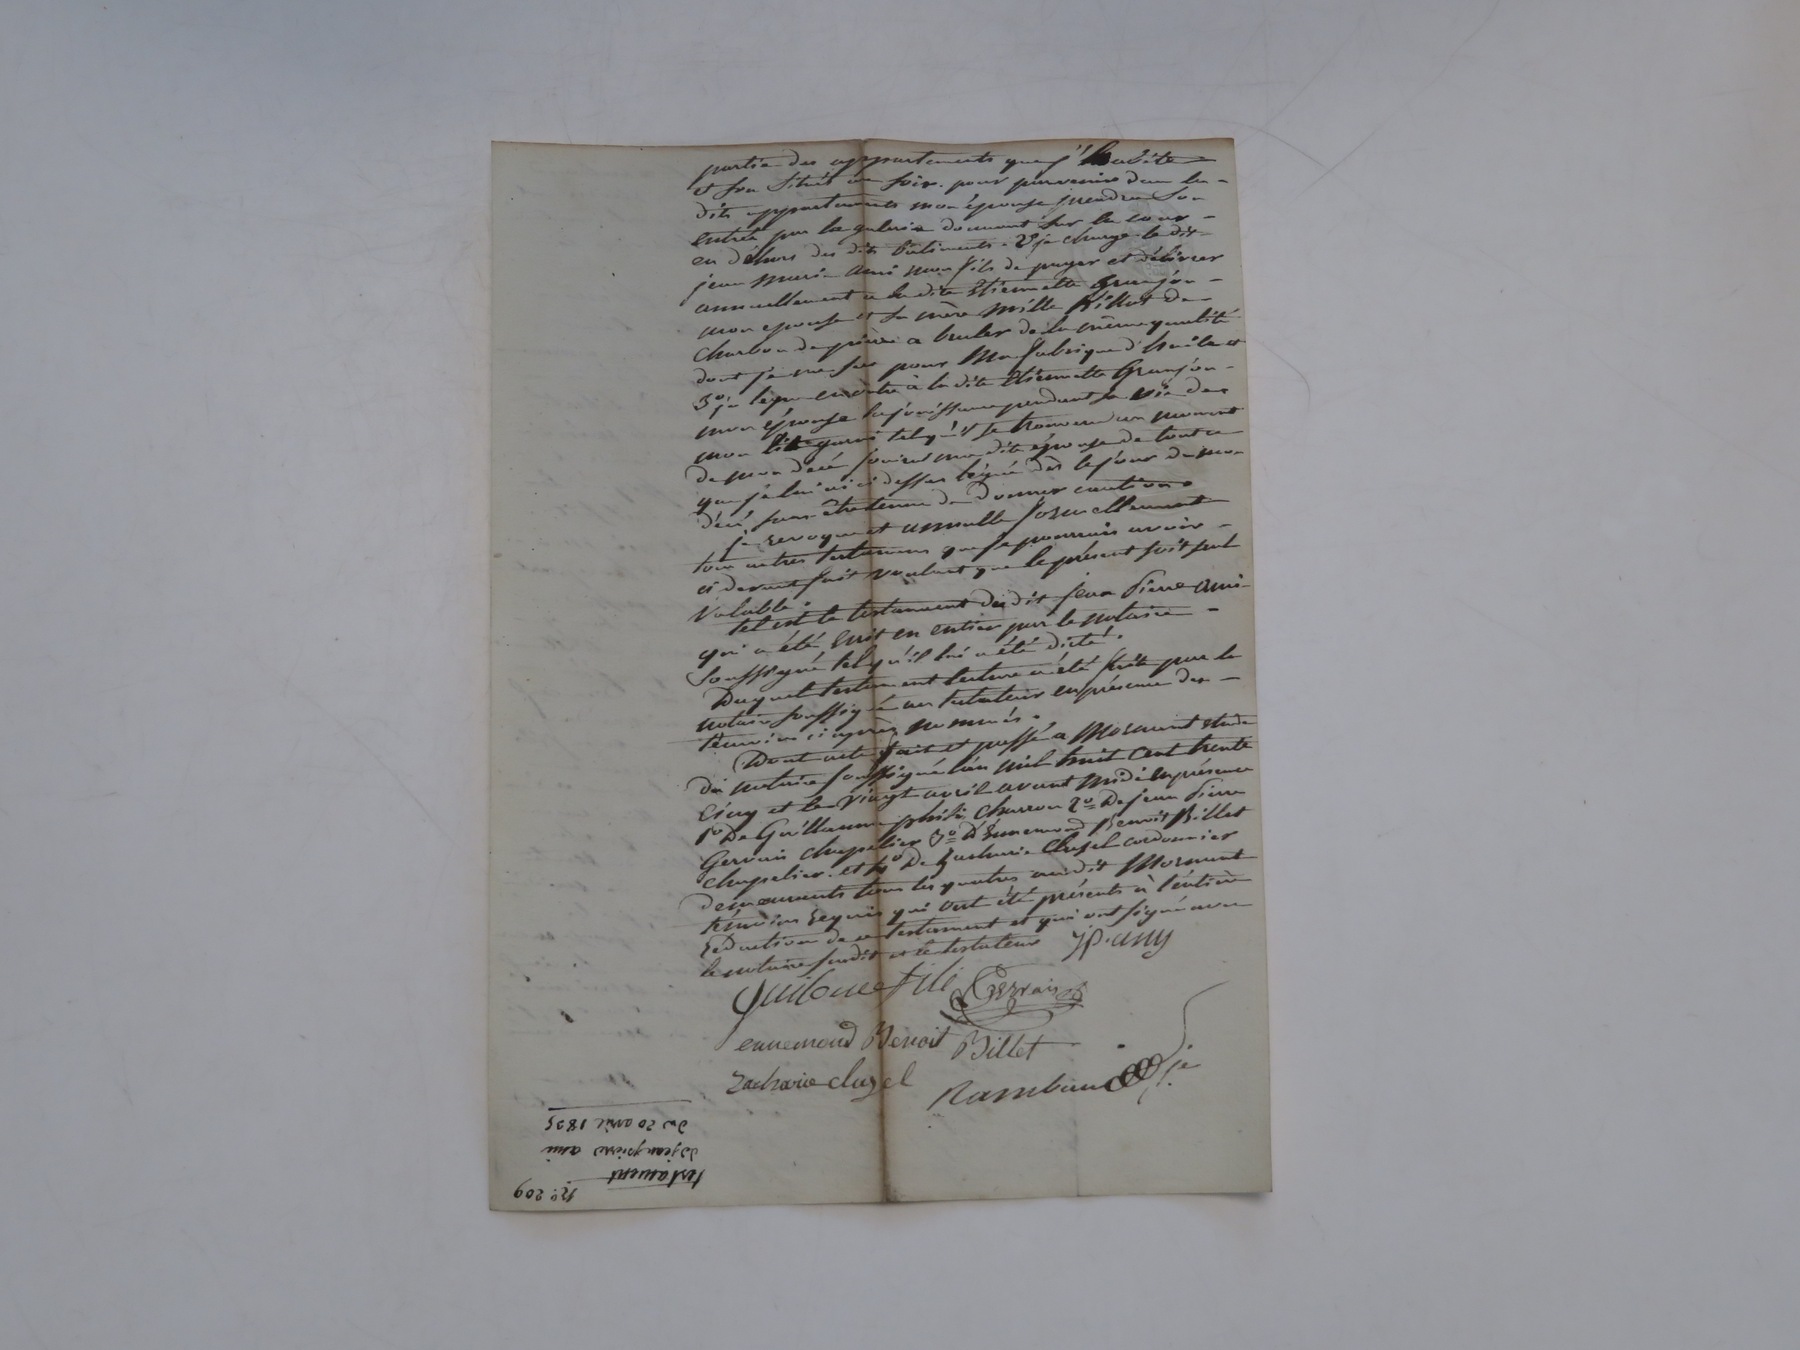 partie des appartements que j'habite
et son situés au soir. pour parvenir dans les
dits appartements mon épouse prendra son
entrée par la galerie donnant sur la cour
en déhors des dits bâtiments. 2º je charge le dit
jean marie ami mon fils de payer et délivrer
annuellement a la dite Etiennette Granjon
mon epouse et sa mère mille kilos de
charbon de pierre a bruler de la même qualité
dont je me sers pour ma fabrique d'huile et
3º je lègue en outre à la dite Etiennette Granjon
mon épouse la jouissance pendant sa vie de
mon lit garni tel qu'il se trouvera au moment
de mon decé jouira ma dite épouse de tout ce
que je lui ai ci dessus légué dès le jour de mon
décé sans être tenue de donner caution
je revoque et annulle formellement
tous autres testamens que je pourrais avoir
ci devant fait voulant que le présent soit seul
valable.
tel est le testament du dit jean Pierre ami
qui a été écrit en entier par le notaire
soussigné tel qu'il lui a été dicté.
Duquel testament lecture a été faite par le
notaire soussigné au testateur en présence des
témoins ci après nommés.
Dont acte fait et passé a Mornant étude
du notaire soussigné l'an mil huit cent trente
cinq et le vingt avril avant midi en présence
1º De Guillaume charron 2º De jean Pierre
Gervais chapelier 3º D'Ennemond Benoit Billet
chapelier. et 4º De Zacharie Clazel cordonnier
demeurants tous les quatres audit Mornant
témoins requis qui ont été présents à l'entière
rédaction de ce testament et qui ont signé avec
le notaire susdit et le testateur JP. amy
fils Gervais
ennemond Benoit Billet
Zacharie clazel
Rambaud
Nº. 209
testament
de jean pierre ami
du 20 avril 1835